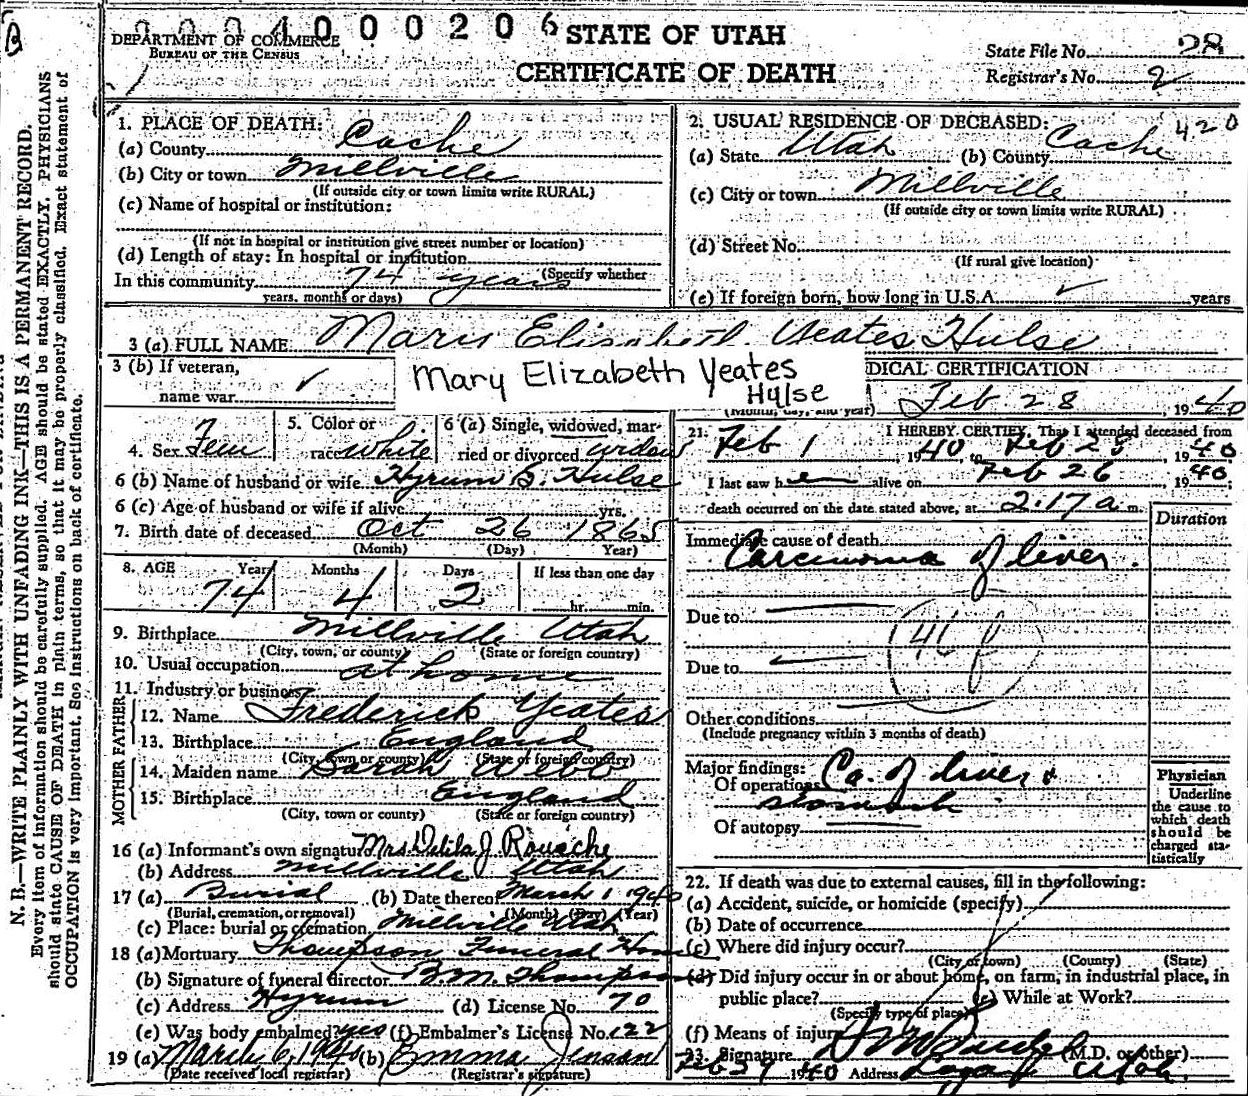 0 0 0 4 0 0 0 2 0 6
STATE OF UTAH
CERTIFICATE OF DEATH
DEPARTMENT OF COMMERCE
BUREAU OF THE CENSUS
State File No. 28
Registrar's No. 2
N. B.—WRITE PLAINLY WITH UNFADING INK—THIS IS A PERMANENT RECORD.
Every item of information should be carefully supplied. AGE should be stated EXACTLY. PHYSICIANS
should state CAUSE OF DEATH in plain terms, so that it may be properly classified. Exact statement of
OCCUPATION is very important. See instructions on back of certificate.
1. PLACE OF DEATH:
(a) County Cache
(b) City or town Millville
(If outside city or town limits write RURAL)
(c) Name of hospital or institution:
(If not in hospital or institution give street number or location)
(d) Length of stay: In hospital or institution
In this community 74 years (Specify whether
years, months or days)
2. USUAL RESIDENCE OF DECEASED: 420
(a) State Utah (b) County Cache
(c) City or town Millville
(If outside city or town limits write RURAL)
(d) Street No.
(If rural give location)
(e) If foreign born, how long in U.S.A. years
3 (a) FULL NAME Mary Elizabeth Yeates Hulse
Mary Elizabeth Yeates
Hylse
3 (b) If veteran,
name war
4. Sex Fem
5. Color or
race white
6 (a) Single, widowed, mar-
ried or divorced widow
6 (b) Name of husband or wife Hyrum S. Hulse
6 (c) Age of husband or wife if alive yrs.
7. Birth date of deceased Oct 26 1865
(Month) (Day) Year)
8. AGE Years Months Days If less than one day
74 4 2 hr. min.
9. Birthplace Millville Utah
(City, town, or county) (State or foreign country)
10. Usual occupation at home
11. Industry or business
FATHER
12. Name Frederick Yeates
13. Birthplace England
(City, town or county) (State or foreign country)
MOTHER
14. Maiden name Sarah Webb
15. Birthplace England
(City, town or county) (State or foreign country)
16 (a) Informant's own signature Mrs. Delila J. Roueche
(b) Address Millville Utah
17 (a) Burial (b) Date thereof March 1 1940
(Burial, cremation, or removal) (Month) (Day) (Year)
(c) Place: burial or cremation Millville Utah
18 (a) Mortuary Thompson Funeral Home
(b) Signature of funeral director B.M. Thompson
(c) Address Hyrum (d) License No. 70
(e) Was body embalmed? yes (f) Embalmer's License No. 122
19 (a) March 6, 1940 (b) Emma Jenson
(Date received local registrar) (Registrar's signature)
DICAL CERTIFICATION
(Month, day, and year) Feb 28, 1940
21. I HEREBY CERTIFY, That I attended deceased from
Feb 1, 1940, to Feb 28, 1940
I last saw her alive on Feb 26, 1940;
death occurred on the date stated above, at 2:17 a m.
Duration
Immediate cause of death
Carcinoma of liver.
Due to
46 f
Due to
Other conditions
(Include pregnancy within 3 months of death)
Major findings: Ca. of liver &
Of operations stomach
Of autopsy
Physician
Underline
the cause to
which death
should be
charged sta-
tistically
22. If death was due to external causes, fill in the following:
(a) Accident, suicide, or homicide (specify)
(b) Date of occurrence
(c) Where did injury occur?
(City or town) (County) (State)
(d) Did injury occur in or about home, on farm, in industrial place, in
public place? (e) While at Work?
(Specify type of place)
(f) Means of injury
23. Signature (M.D. or other)
Feb 29 1940 Address Logan Utah.